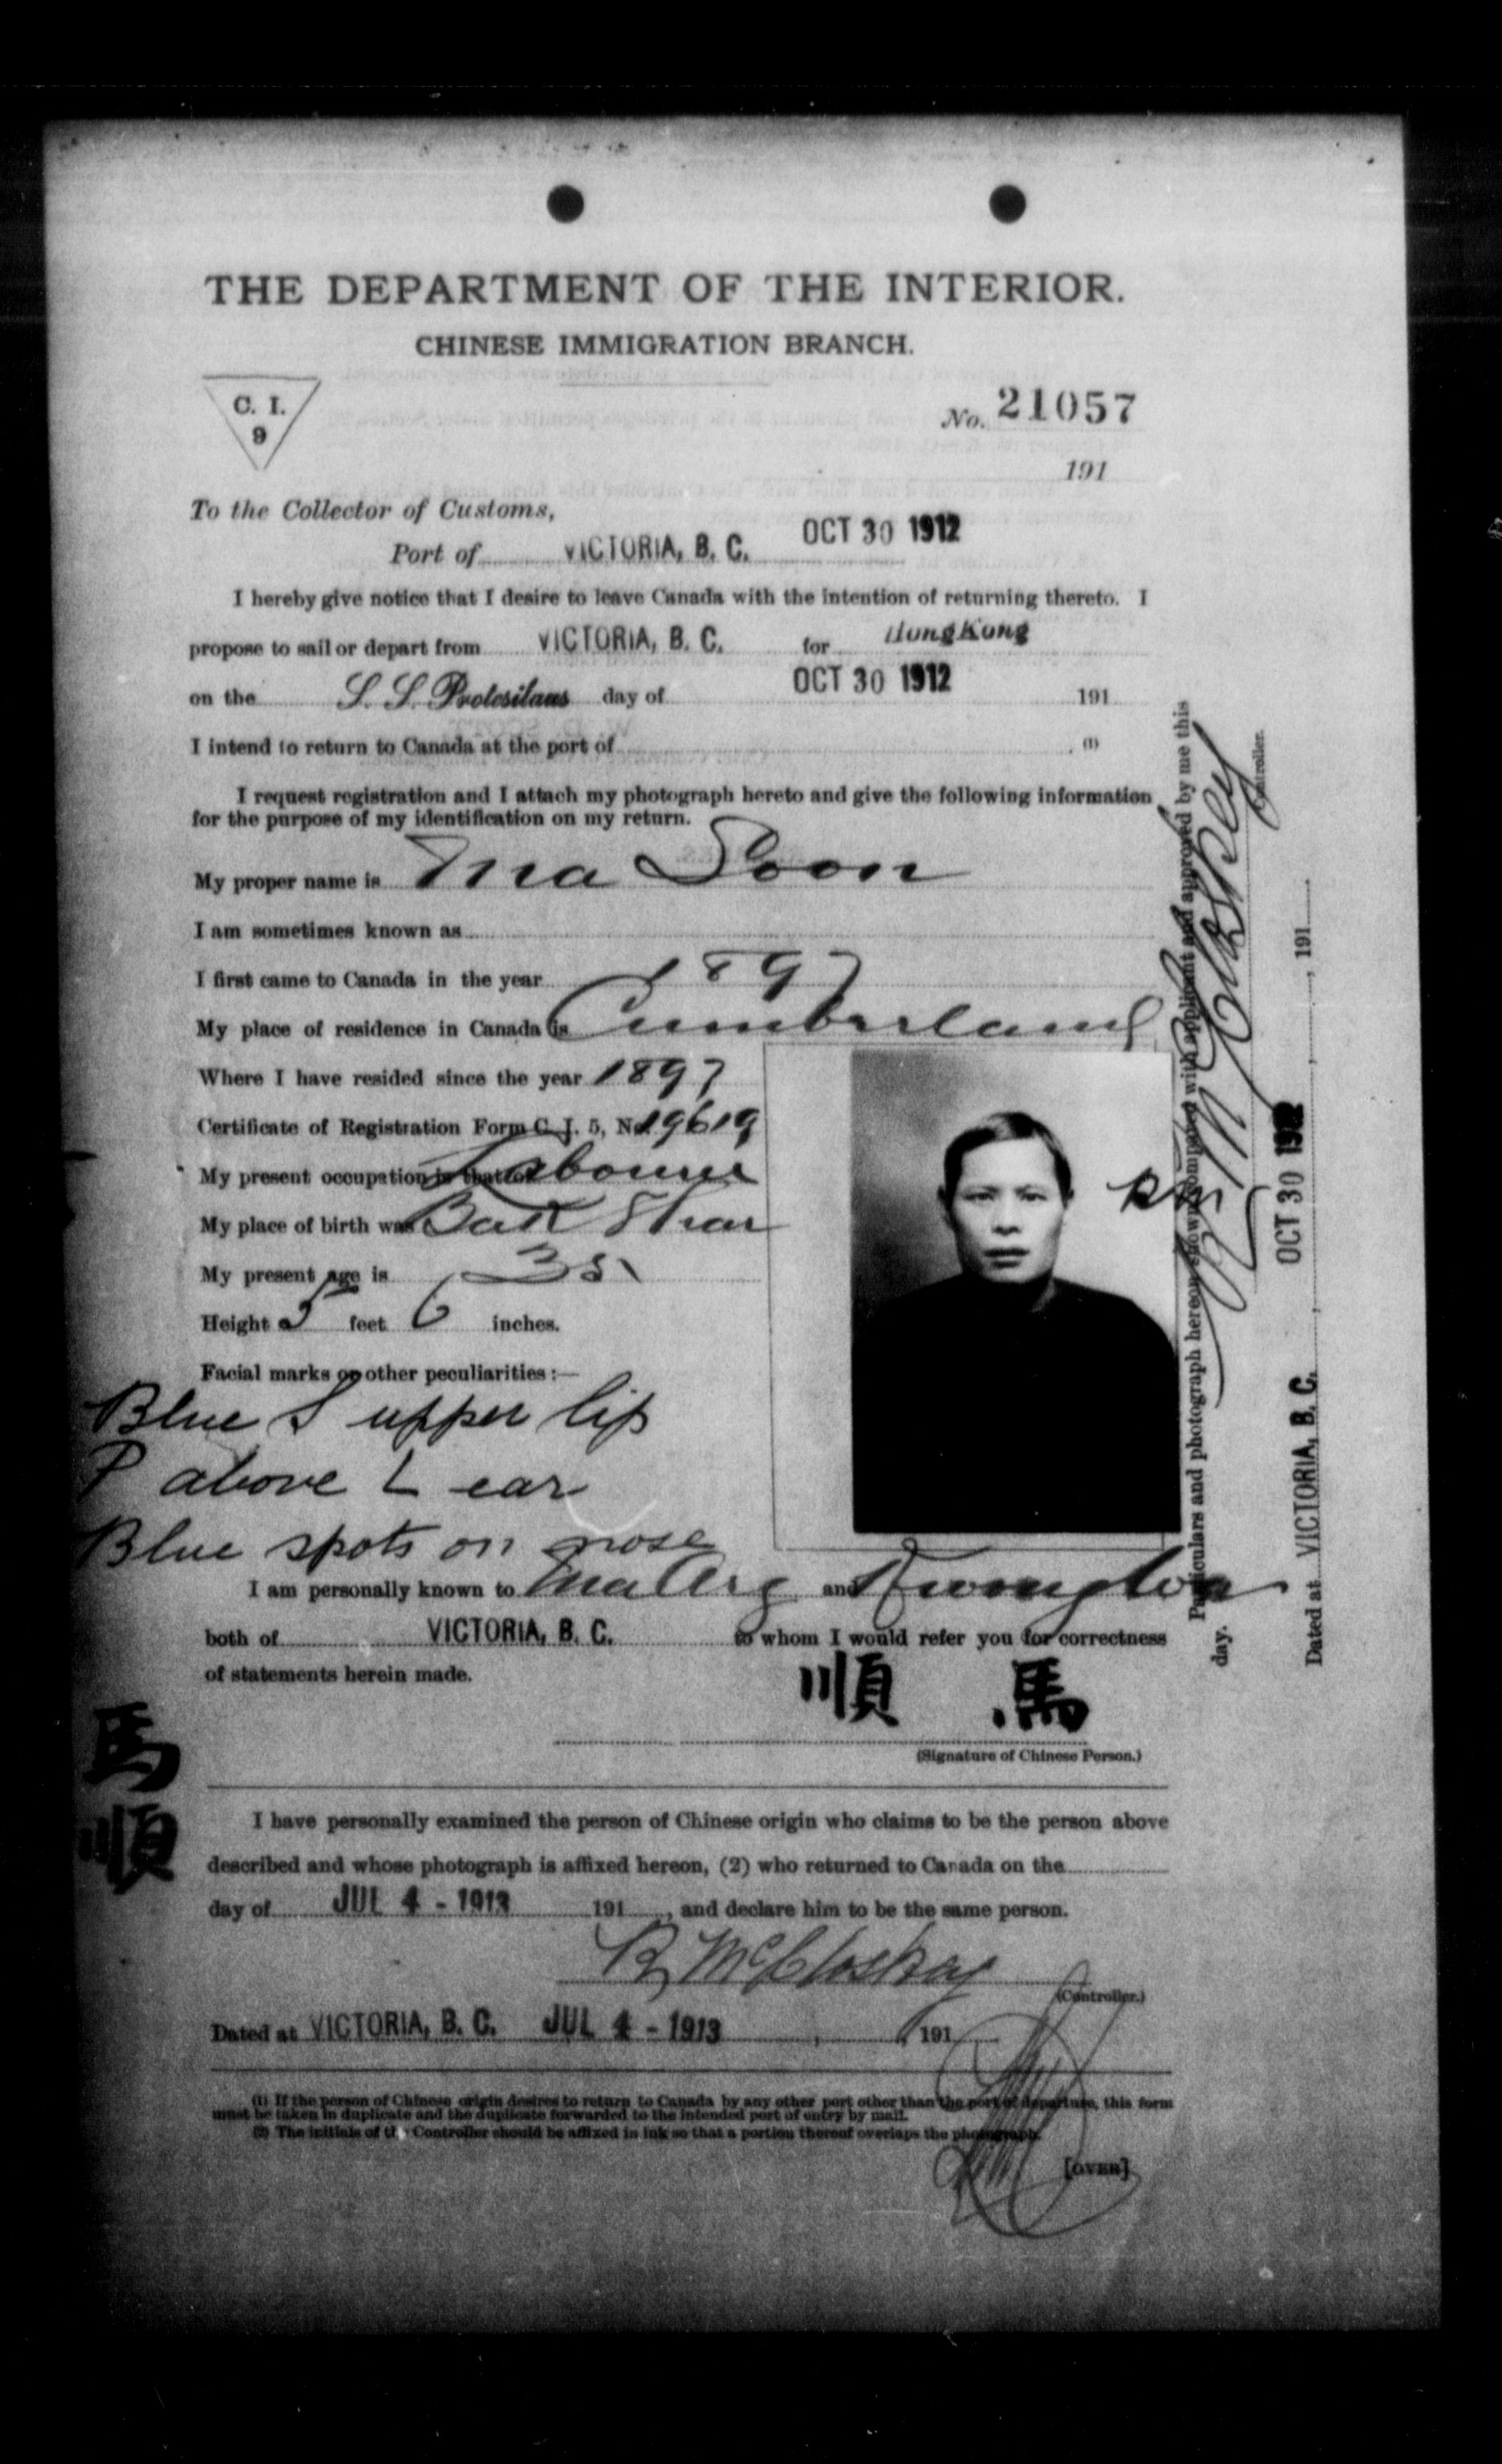 THE DEPARTMENT OF THE INTERIOR.
CHINESE IMMIGRATION BRANCH.
C. I.
9
No. 21057
191
To the Collector of Customs,
Port of VICTORIA, B. C. OCT 30 1912
I hereby give notice that I desire to leave Canada with the intention of returning thereto. I
propose to sail or depart from VICTORIA, B. C. for HongKong
on the S. S. Protesilaus day of OCT 30 1912 191
I intend to return to Canada at the port of (1)
I request registration and I attach my photograph hereto and give the following information
for the purpose of my identification on my return.
My proper name is Ma Soon
I am sometimes known as
I first came to Canada in the year 1897
My place of residence in Canada is Cumberland
Where I have resided since the year 1897
Certificate of Registration Form C. I. 5, No. 19619
My present occupation is that of Labourer
My place of birth was Bak Shar
My present age is 35
Height 5 feet 6 inches.
Facial marks or other peculiarities :—
Blue S upper lip
P above L ear
Blue spots on nose
I am personally known to Ma and
both of VICTORIA, B. C. to whom I would refer you for correctness
of statements herein made.
順 馬
(Signature of Chinese Person.)
馬
順
I have personally examined the person of Chinese origin who claims to be the person above
described and whose photograph is affixed hereon, (2) who returned to Canada on the
day of JUL 4 - 1913 191 , and declare him to be the same person.
R McCloskey
(Controller.)
Dated at VICTORIA, B. C. JUL 4 - 1913 , 191
(1) If the person of Chinese origin desires to return to Canada by any other port other than the port of departure, this form
must be taken in duplicate and the duplicate forwarded to the intended port of entry by mail.
(2) The initials of the Controller should be affixed in ink so that a portion thereof overlaps the photograph.
[OVER]
Particulars and photograph hereon shown compared with applicant and approved by me this
day.
McCloskey
Controller.
Dated at VICTORIA, B. C. OCT 30 1912 , 191